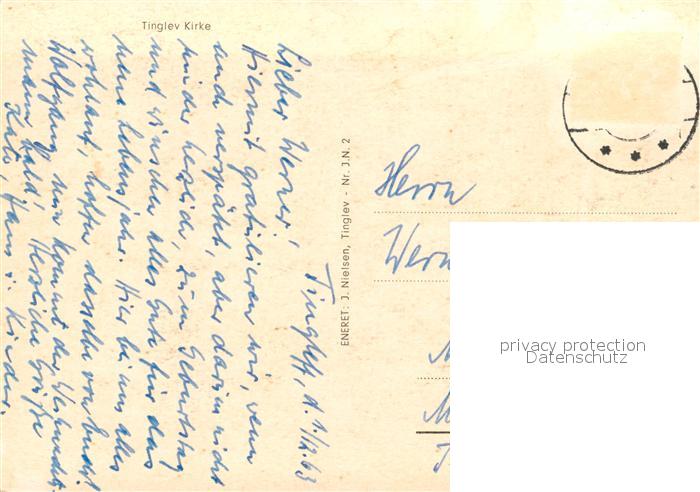 Tinglev Kirke
Tingleff, d. 1/12.63
Lieber Werner!
Hiermit gratulieren wir, wenn
auch verspätet, aber darum nicht
minder herzlich, zum Geburtstag
und wünschen alles Gute für das
neue Lebensjahr. Hier bei uns alles
wohlauf, hoffen dasselbe von Euch!
Wolfgang, nun kommt der Weihnachts-
mann bald! Herzliche Grüße
Käte, Hans u. Kinder.
ENERET: J. Nielsen, Tinglev - Nr. J.N. 2
Herrn
Wern
privacy protection
Datenschutz